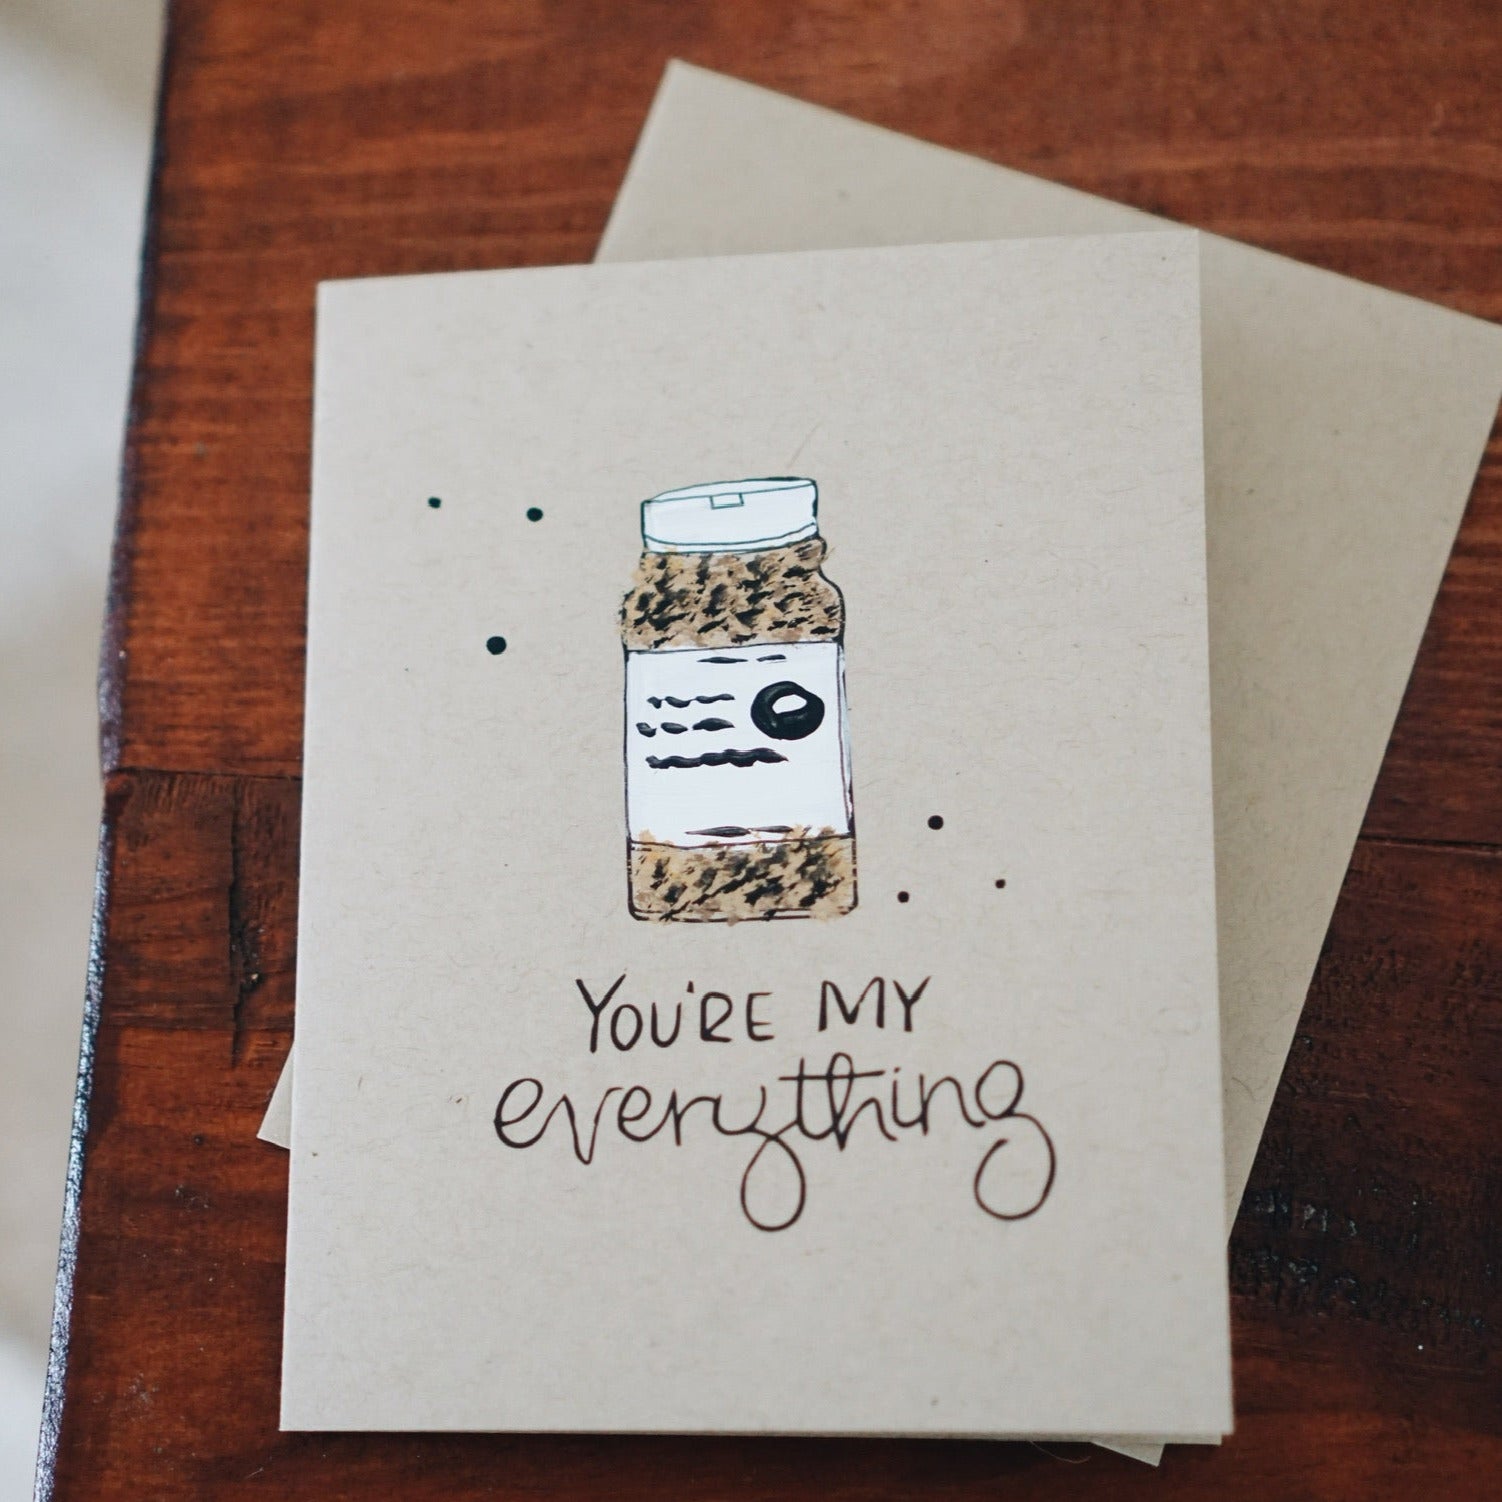 YOU'RE MY
everything